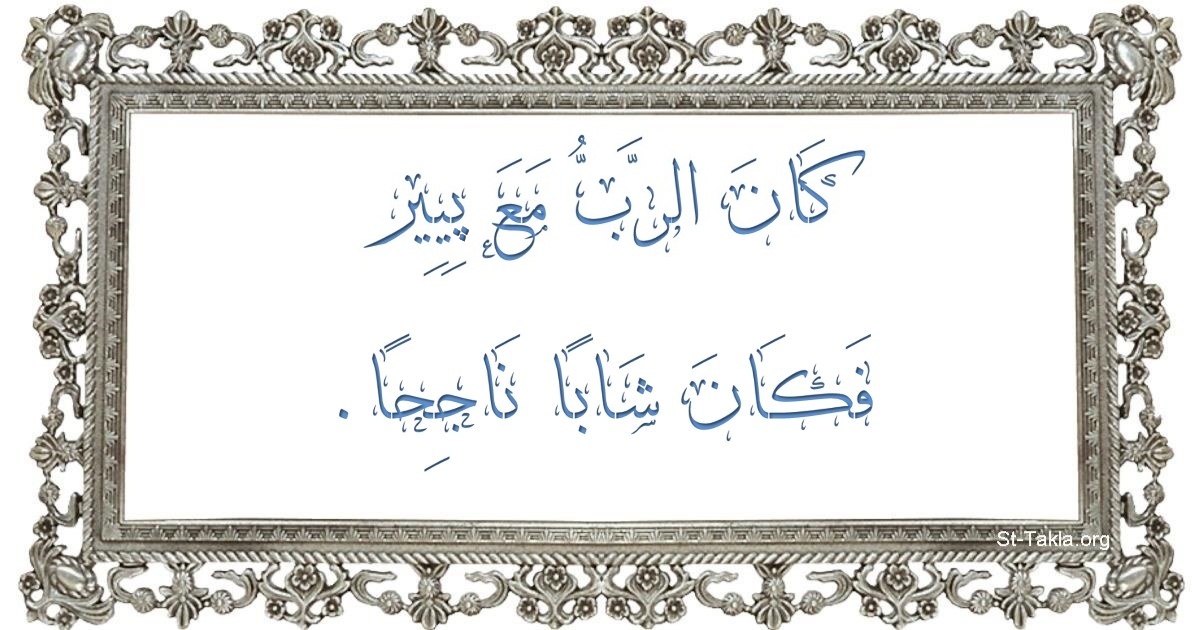 كَانَ الرَّبُّ مَعَ پِيِير
فَكَانَ شَابًا نَاجِحًا .
St-Takla.org